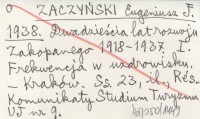 O ZACZYŃSKI Eugeniusz J.
1938. Dwadzieścia lat rozwoju
Zakopanego 1918-1937. I.
Frekwencja w uzdrowisku.
– Kraków. Ss. 23, il., Rés.
Komunikaty Studium Turyzmu
UJ nr 9.